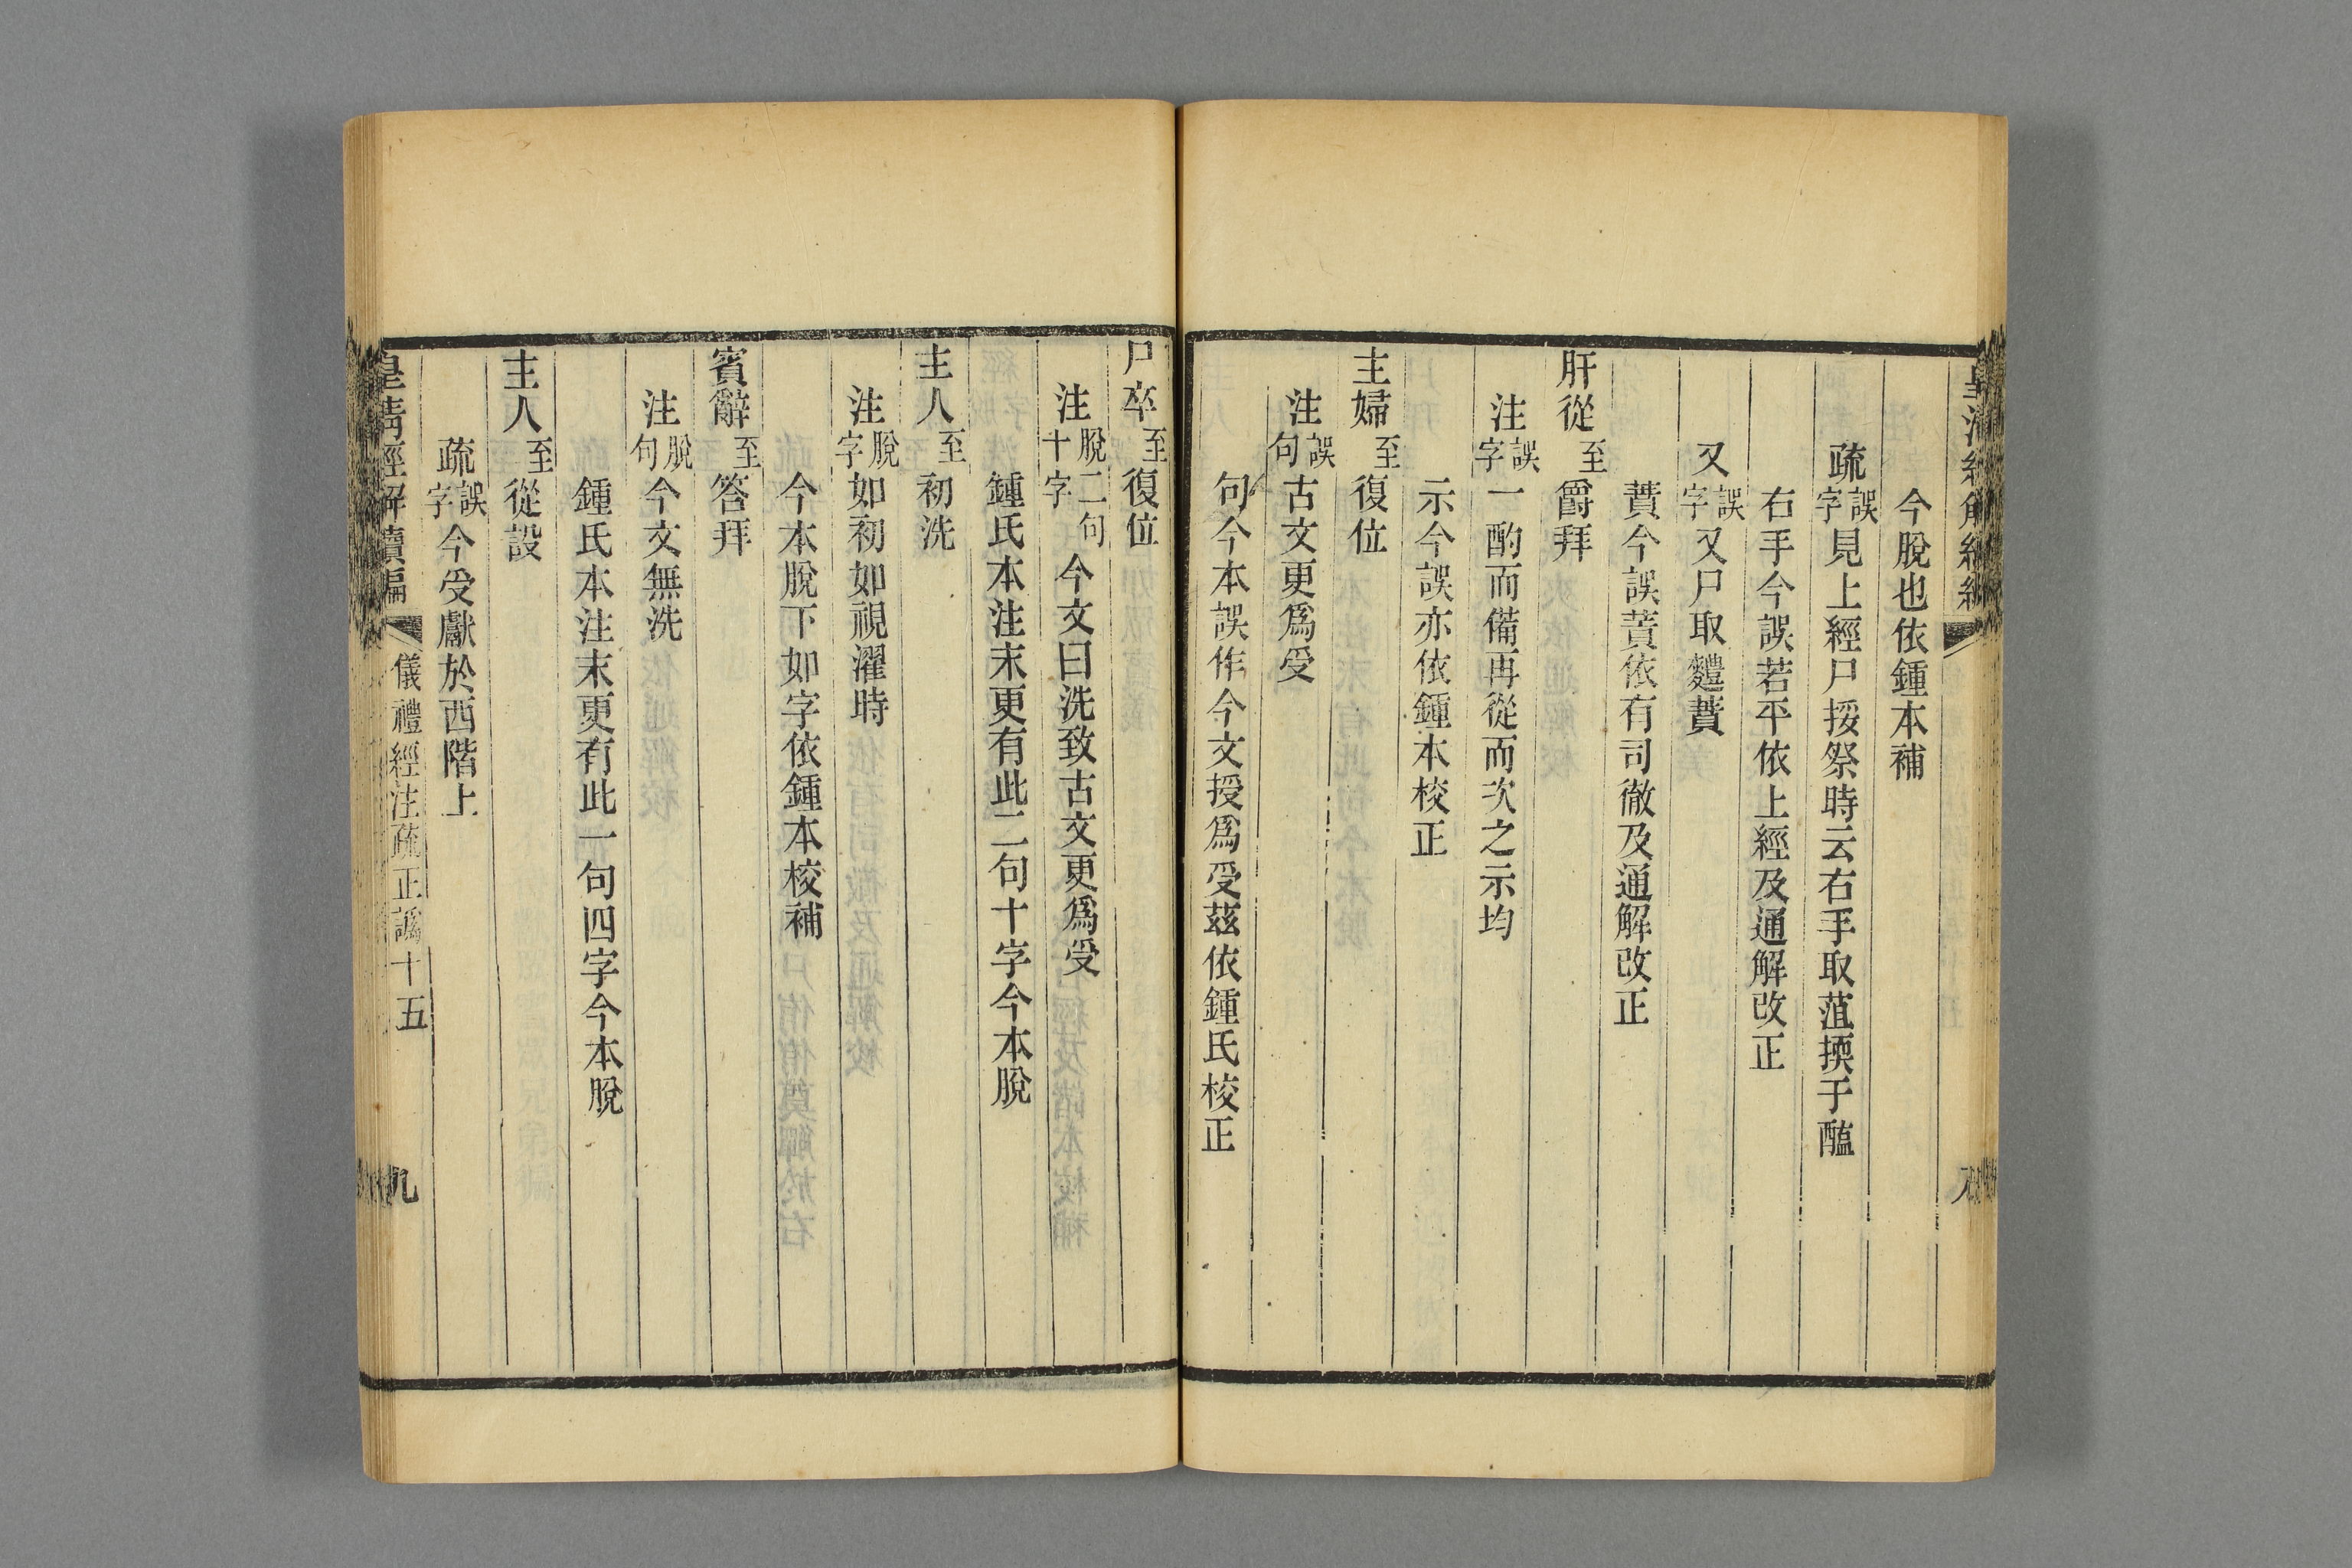 今脫也依鍾本補
疏誤字見上經尸挼祭時云右手取菹擩于醢
右手今誤若平依上經及通解改正
又誤字又尸取麷蕡
蕡今誤蕡依有司徹及通解改正
肝從至爵拜
注誤字一酌而備再從而次之示均
示今誤亦依鍾本校正
主婦至復位
注誤句古文更爲受
句今本誤作今文授爲受茲依鍾氏校正
尸卒至復位
注脫二句十字今文曰洗致古文更爲受
鍾氏本注末更有此二句十字今本脫
主人至初洗
注脫字如初如視濯時
今本脫下如字依鍾本校補
賓辭至答拜
注脫句今文無洗
鍾氏本注末更有此一句四字今本脫
主人至從設
疏誤字今受獻於西階上
皇清經解續編 儀禮經注疏正譌十五 九